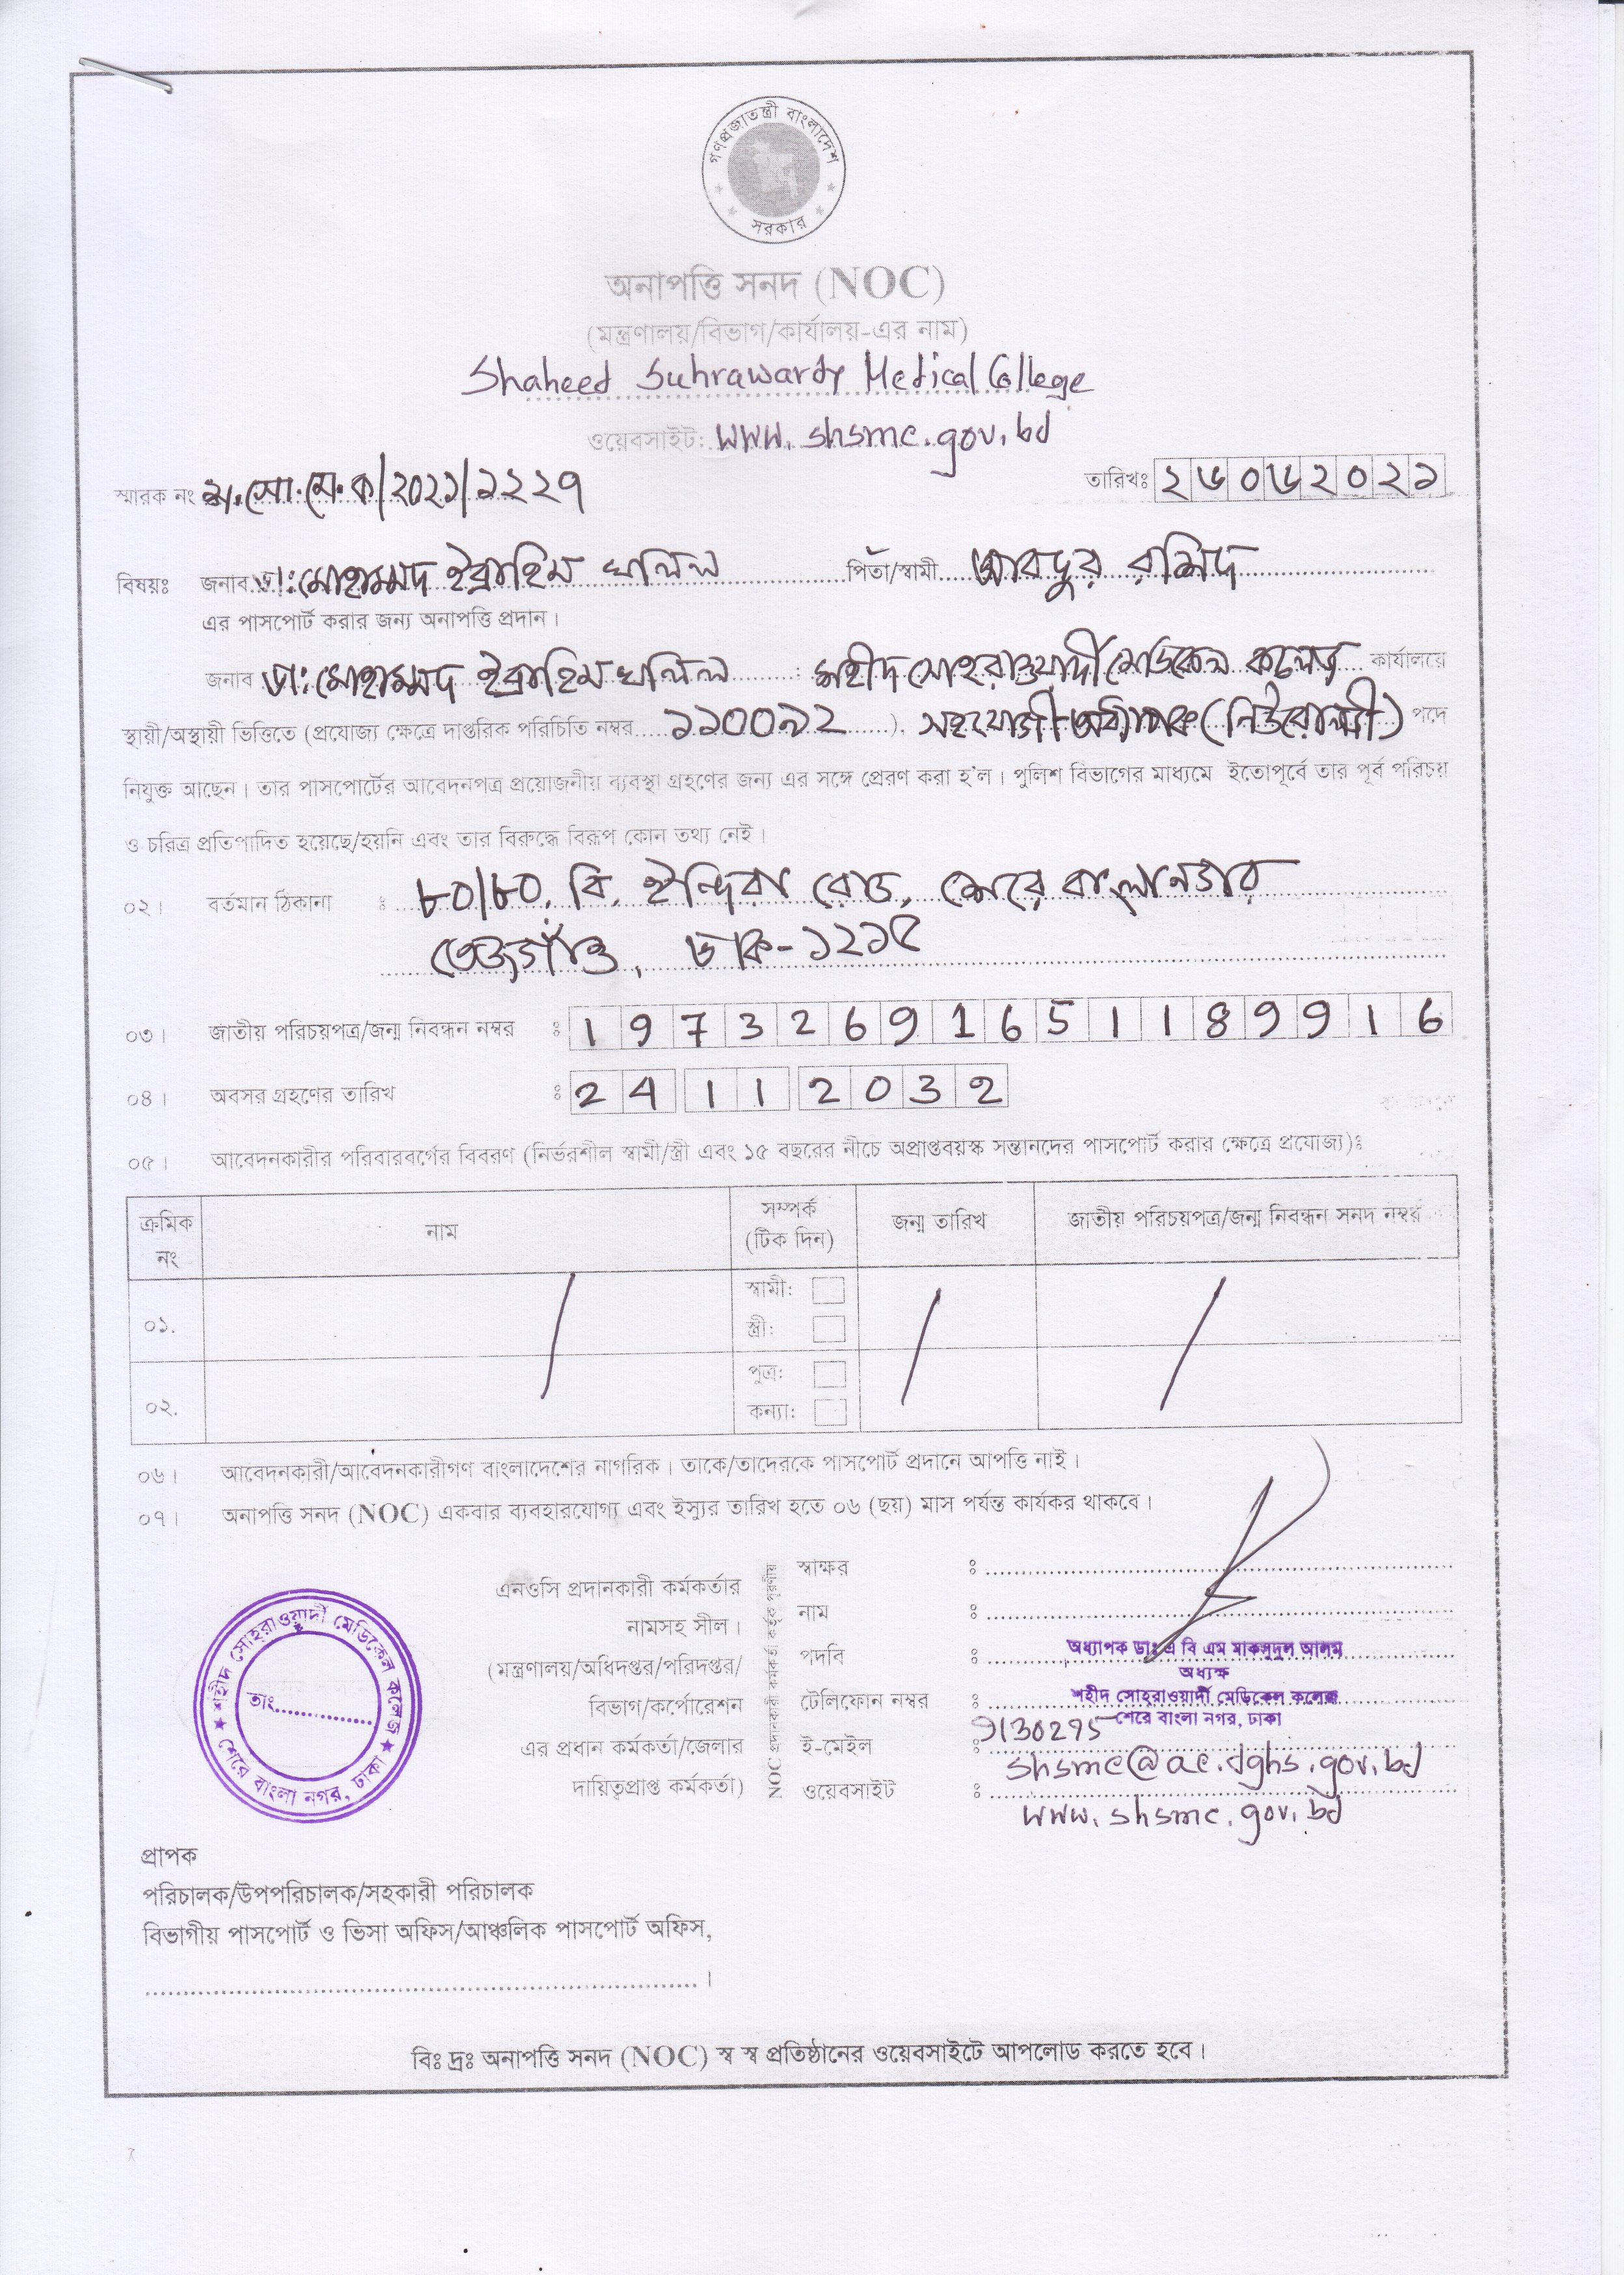 গণপ্রজাতন্ত্রী বাংলাদেশ
সরকার
অনাপত্তি সনদ (NOC)
(মন্ত্রণালয়/বিভাগ/কার্যালয়-এর নাম)
Shaheed Suhrawardy Medical College
ওয়েবসাইট: www.shsmc.gov.bd
স্মারক নং শ.সো.মে.ক/২০২১/১২২৭ তারিখঃ ২৬০৬২০২১
বিষয়ঃ জনাব ডা:মোহাম্মদ ইব্রাহিম খলিল পিতা/স্বামী আবদুর রশিদ
এর পাসপোর্ট করার জন্য অনাপত্তি প্রদান।
জনাব ডা:মোহাম্মদ ইব্রাহিম খলিল : শহীদ সোহরাওয়ার্দী মেডিকেল কলেজ কার্যালয়ে
স্থায়ী/অস্থায়ী ভিত্তিতে (প্রযোজ্য ক্ষেত্রে দাপ্তরিক পরিচিতি নম্বর ১১০০৯২), সহযোগী অধ্যাপক (নিউরোলজী) পদে
নিযুক্ত আছেন। তার পাসপোর্টের আবেদনপত্র প্রয়োজনীয় ব্যবস্থা গ্রহণের জন্য এর সঙ্গে প্রেরণ করা হ'ল। পুলিশ বিভাগের মাধ্যমে ইতোপূর্বে তার পূর্ব পরিচয়
ও চরিত্র প্রতিপাদিত হয়েছে/হয়নি এবং তার বিরুদ্ধে বিরূপ কোন তথ্য নেই।
০২। বর্তমান ঠিকানা ঃ ৮০/৮০, বি, ইন্দিরা রোড, শেরে বাংলানগর
তেজগাঁও, ঢাকা-১২১৫
০৩। জাতীয় পরিচয়পত্র/জন্ম নিবন্ধন নম্বর ঃ 19732691651189916
০৪। অবসর গ্রহণের তারিখ ঃ 24 11 2032
০৫। আবেদনকারীর পরিবারবর্গের বিবরণ (নির্ভরশীল স্বামী/স্ত্রী এবং ১৫ বছরের নীচে অপ্রাপ্তবয়স্ক সন্তানদের পাসপোর্ট করার ক্ষেত্রে প্রযোজ্য)ঃ
ক্রমিক নং নাম সম্পর্ক (টিক দিন) জন্ম তারিখ জাতীয় পরিচয়পত্র/জন্ম নিবন্ধন সনদ নম্বর
০১. স্বামী:
স্ত্রী:
০২. পুত্র:
কন্যা:
০৬। আবেদনকারী/আবেদনকারীগণ বাংলাদেশের নাগরিক। তাকে/তাদেরকে পাসপোর্ট প্রদানে আপত্তি নাই।
০৭। অনাপত্তি সনদ (NOC) একবার ব্যবহারযোগ্য এবং ইস্যুর তারিখ হতে ০৬ (ছয়) মাস পর্যন্ত কার্যকর থাকবে।
শহীদ সোহরাওয়ার্দী মেডিকেল কলেজ
তাং
শেরে বাংলা নগর, ঢাকা
এনওসি প্রদানকারী কর্মকর্তার
নামসহ সীল।
(মন্ত্রণালয়/অধিদপ্তর/পরিদপ্তর/
বিভাগ/কর্পোরেশন
এর প্রধান কর্মকর্তা/জেলার
দায়িত্বপ্রাপ্ত কর্মকর্তা)
NOC প্রদানকারী কর্মকর্তা কর্তৃক পূরণীয়
স্বাক্ষর ঃ
নাম ঃ
পদবি ঃ অধ্যাপক ডাঃ এ বি এম মাকসুদুল আলম
অধ্যক্ষ
টেলিফোন নম্বর ঃ শহীদ সোহরাওয়ার্দী মেডিকেল কলেজ
9130295 শেরে বাংলা নগর, ঢাকা
ই-মেইল ঃ shsmc@ac.dghs.gov.bd
ওয়েবসাইট ঃ www.shsmc.gov.bd
প্রাপক
পরিচালক/উপপরিচালক/সহকারী পরিচালক
বিভাগীয় পাসপোর্ট ও ভিসা অফিস/আঞ্চলিক পাসপোর্ট অফিস,
।
বিঃ দ্রঃ অনাপত্তি সনদ (NOC) স্ব স্ব প্রতিষ্ঠানের ওয়েবসাইটে আপলোড করতে হবে।